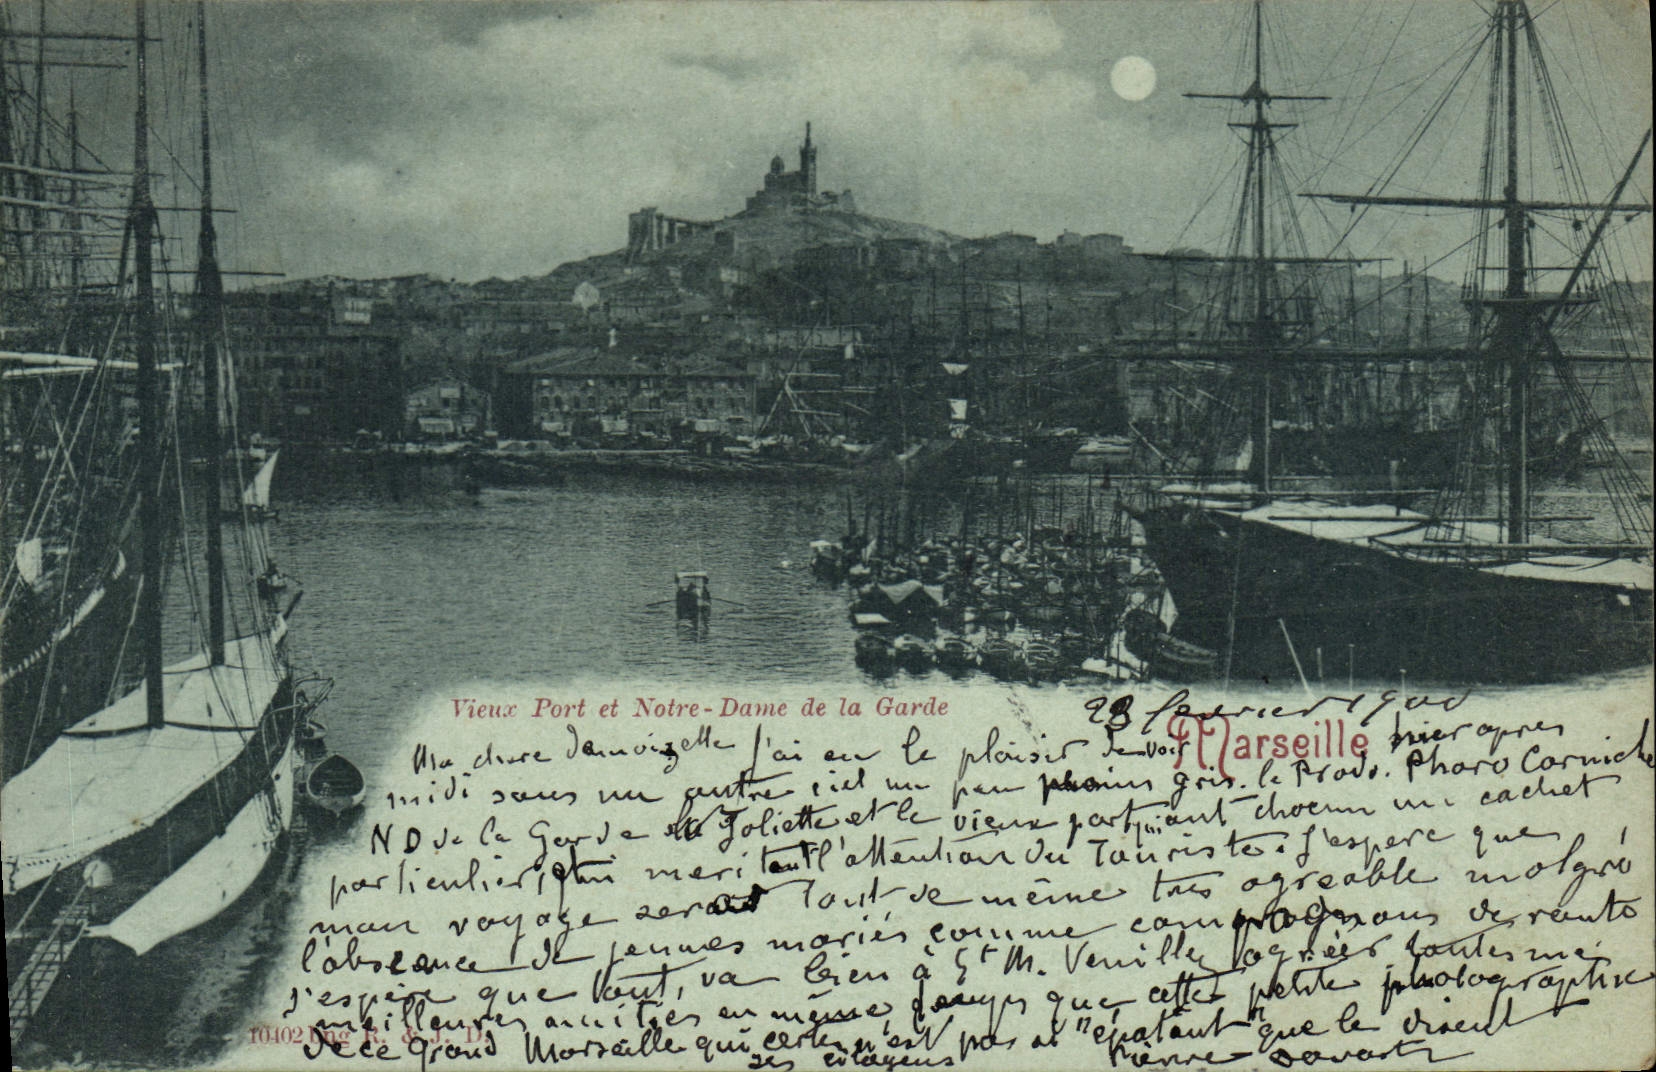 Vieux Port et Notre-Dame de la Garde
23 fevrier 1900
Marseille
Ma chere demoizelle J'ai eu le plaisir de voir hier apres
midi sous un autre ciel un peu moins gris. le Prado. Pharo Corniche
N D de la Garde la Joliette et le vieux port qui ont chacun un cachet
particulier, qui meritent l'attention du Touriste. J'espere que
mon voyage sera tout de même très agreable malgré
l'absence de jeunes mariés comme compagnons de route
J'espère que tout, va bien à St M. Veuillez agréer toutes mes
meilleures amitiés en même temps que cette petite photographie
de ce Grand Marseille qui certes n'est pas si "épatant" que le disent
ses citoyens Pierre
10402 Lug R. & J. D.